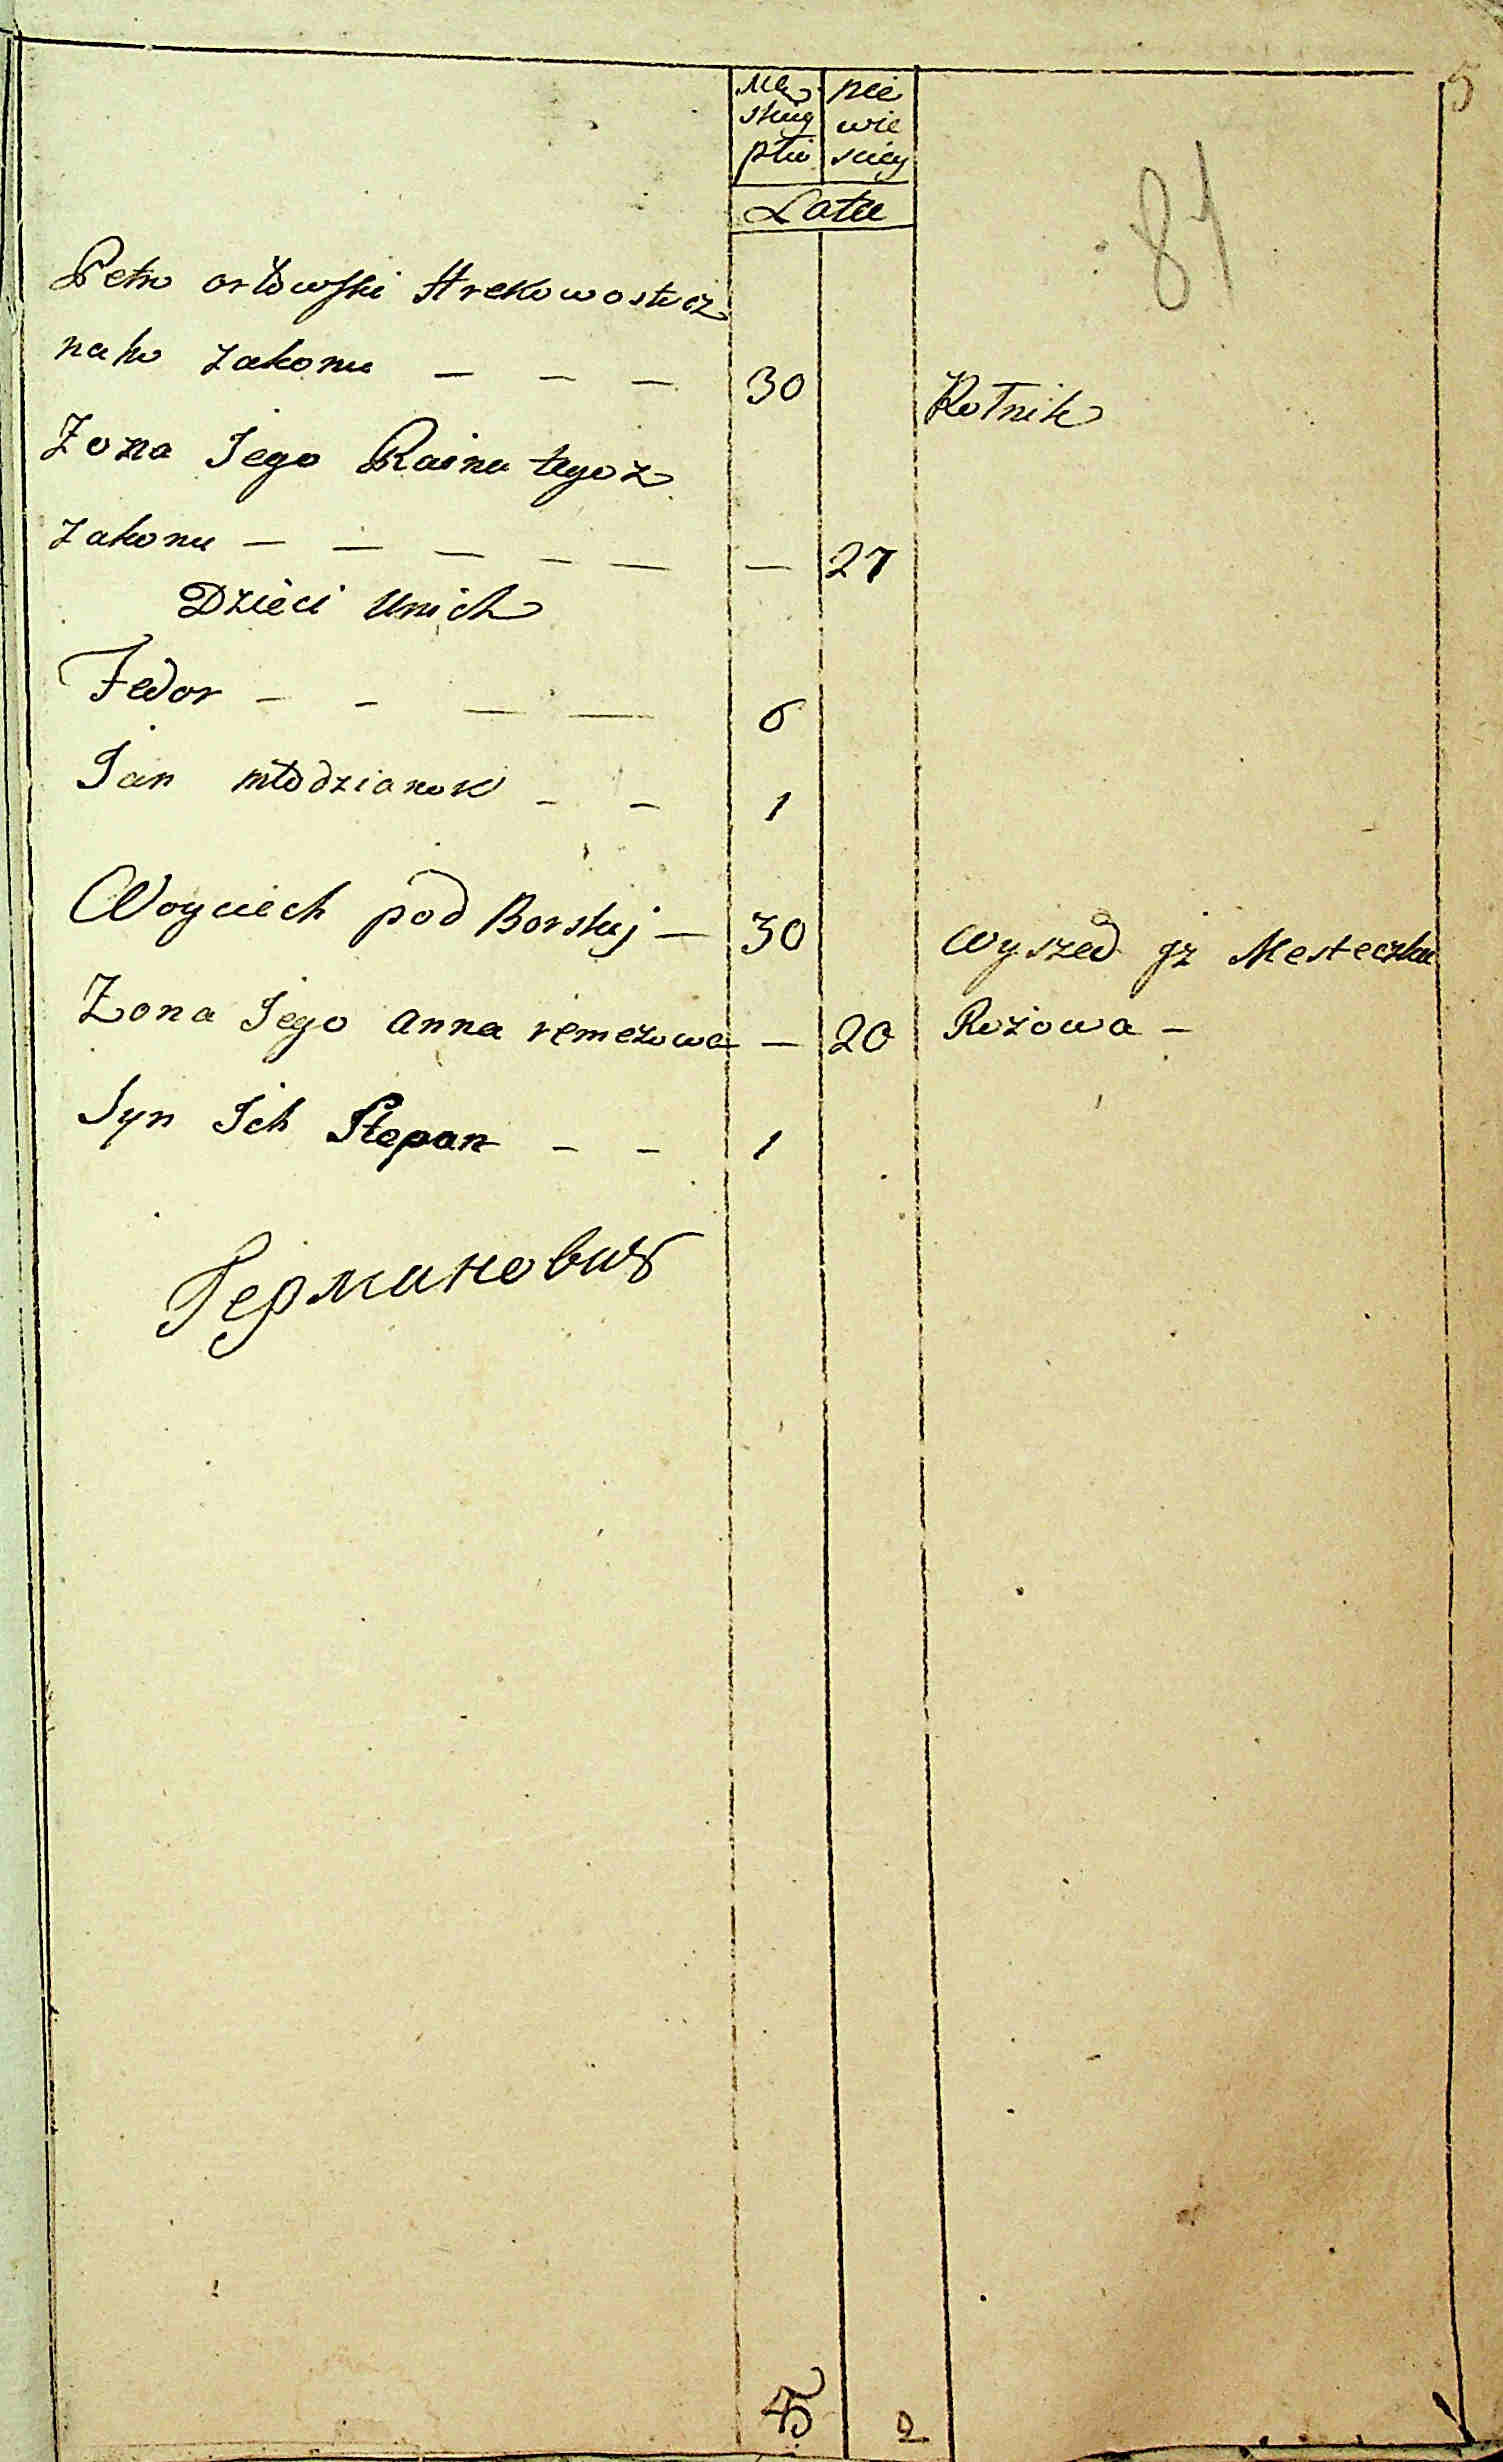 5
Mę nie
skiey wie
płci sciey
Lata
81
Petro orłowski Hrekowostocz
naho zakonu — — — 30 Rolnik
Zona Jego Raina tegoz
zakonu — — — — — — 27
Dzieci Unich
Fedor — — — — 6
Jan młodzianow — — 1
Woyciech pod Borskij — 30 Wyszed jz Mesteczka
Zona Jego anna remezowa — 20 Rożowa —
Syn Ich Stepan — — 1
Германовичъ
5 2